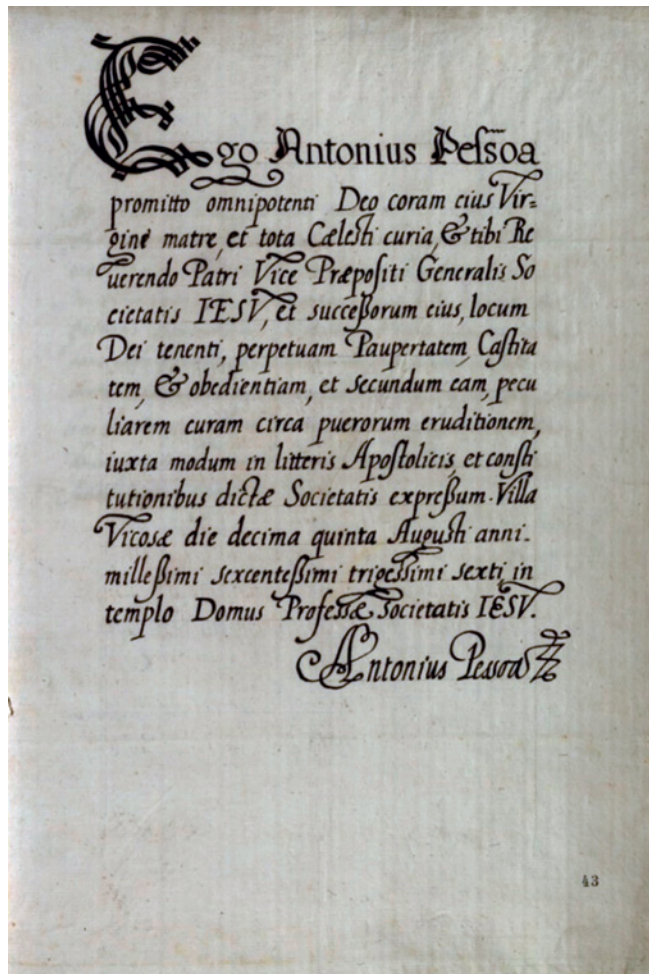 Ego Antonius Pessõa
promitto omnipotenti Deo coram eius Vir=
gine matre, et tota Cælesti curia, & tibi Re
uerendo Patri Vice Præpositi Generalis So
cietatis IESV, et successorum eius, locum
Dei tenenti, perpetuam Paupertatem, Castita
tem, & obedientiam, et secundum eam, pecu
liarem curam circa puerorum eruditionem,
iuxta modum in litteris Apostolicis, et consti
tutionibus dictæ Societatis expressum. Villa
Vicosæ die decima quinta Augusti anni.
millessimi sexcentessimi trigessimi sexti, in
templo Domus Professæ Societatis IESV.
Antonius Pessoa
43